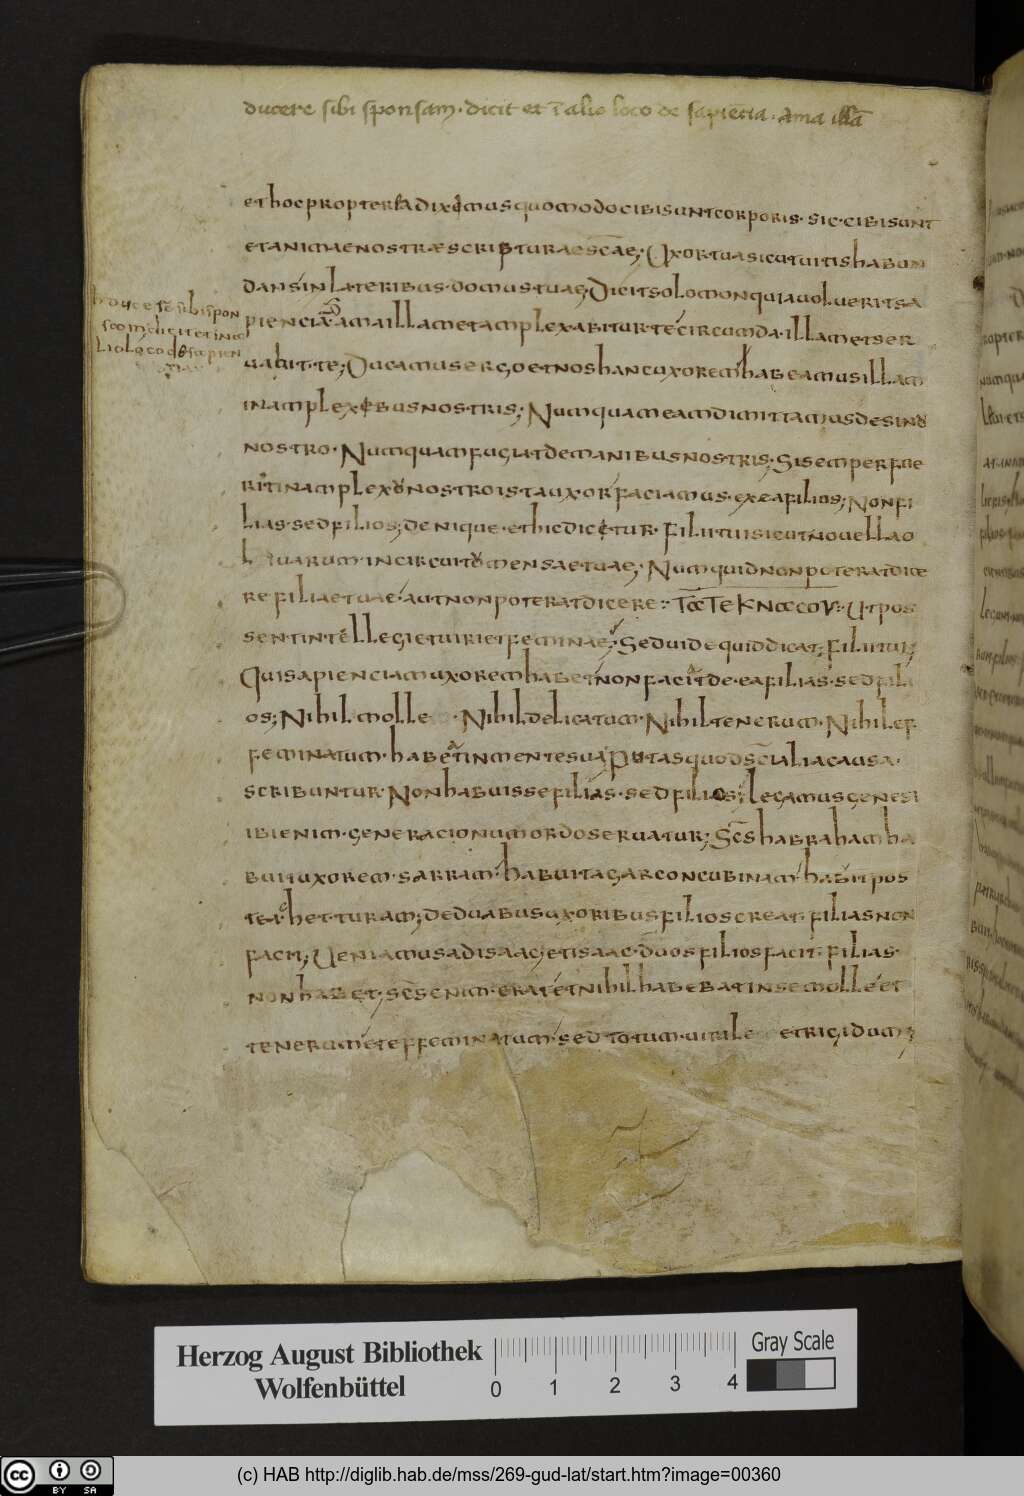 ducere sibi sponsam· dicit et ī alio loco de sapiētia· ama illā
et hoc propterea diximus quomodo cibi sunt corporis· sic· cibi sunt
et animae nostræ scripturae scae; Uxor tua sicut uitis habun
dans in lateribus domus tuae; Dicit solomon qui a uoluerit sa
pienciā ama illam et amplexabitur· te circumda· illam et ser
uabit· te; Ducamus ergo et nos hanc uxorem habeamus illam
in amplexibus nostris; Numquam eam dimittamus de sinu
nostro· Numquam fugiat de manibus nostris; Si semper fue
rit in amplexu nostro ista uxor faciamus· ex ea filios; Non fi
lias· sed filios; denique· et hic dicitur· Filii tui sicut nouella o
liuarum· in circuitu mensae tuae; Numquid non poterat dice
re filiae tuae· aut non poterat dicere: Τα τεκνα σου: Ut pos
sent intellegi et uiri et feminae; Sed uide quid dicat; Filii tui;
Qui sapienciam uxorem habet non facit de· ea filias· sed fili
os; Nihil molle· Nihil delicatum· Nihil tenerum· Nihil ef
feminatum· habet in mente sua Putas quod sci alia causa·
scribuntur· Non habuisse filias· sed filios; legamus genesi
ibi enim· generacionum ordo seruatur; Scs habraham ha
buit uxorem· sarram· habuit agar concubinam habuit pos
tea het turam; de duabus uxoribus filios creat· filias non
facit; Ueniamus ad isaac et isaac· duos filios facit· filias·
non habet· scs enim· erat et nihil habebat in se molle et
tenerum et effeminatum sed totum· uirile et rigidum;
ducere sibi spon
sam dicit et in a
lio loco de sapien
Herzog August Bibliothek
Wolfenbüttel
0 1 2 3 4
Gray Scale
cc BY SA
(c) HAB http://diglib.hab.de/mss/269-gud-lat/start.htm?image=00360